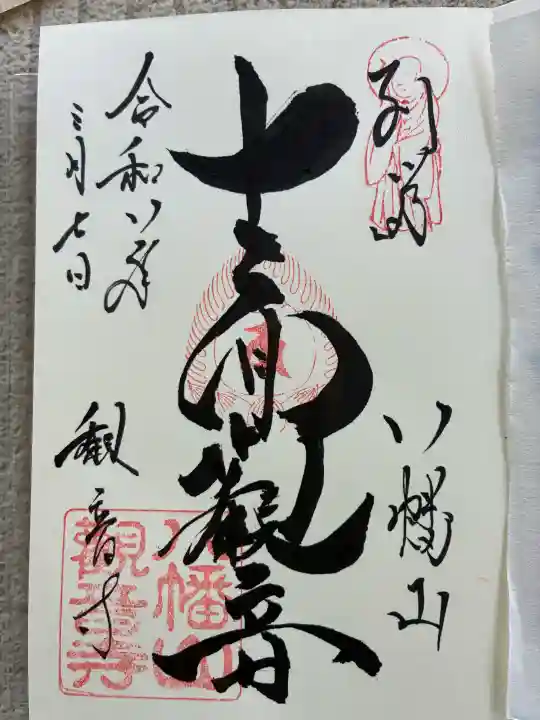 八幡山
十一面観音
令和八年
三月七日
観音寺
八幡山
觀音寺